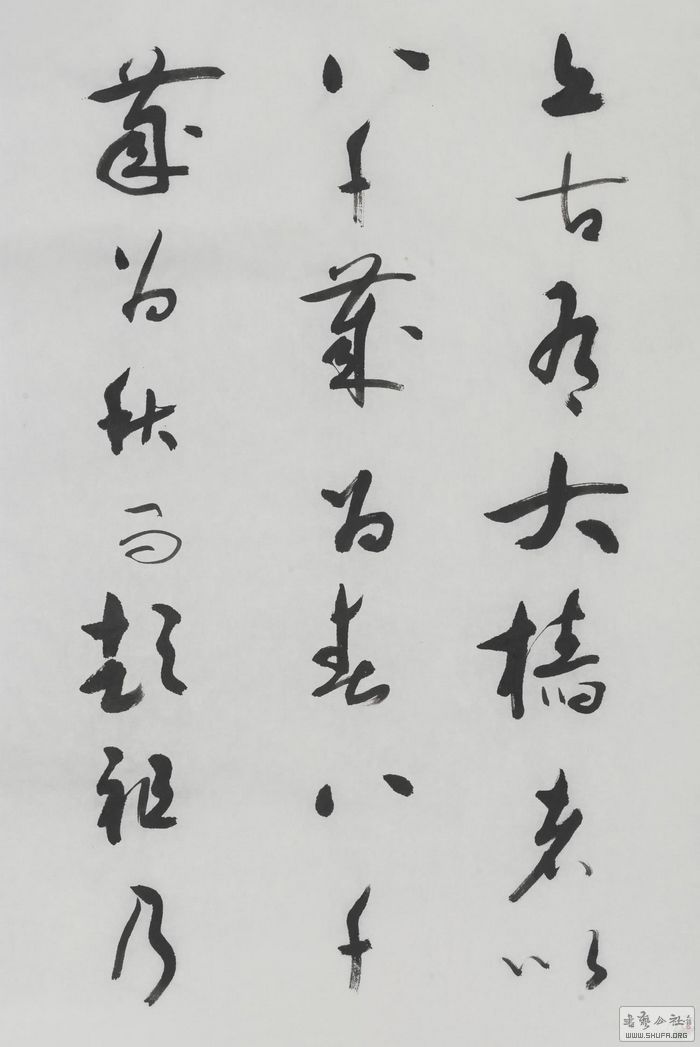 上古有大椿者以
八千歲为春八千
歲为秋而彭祖乃
书艺公社
WWW.SHUFA.ORG